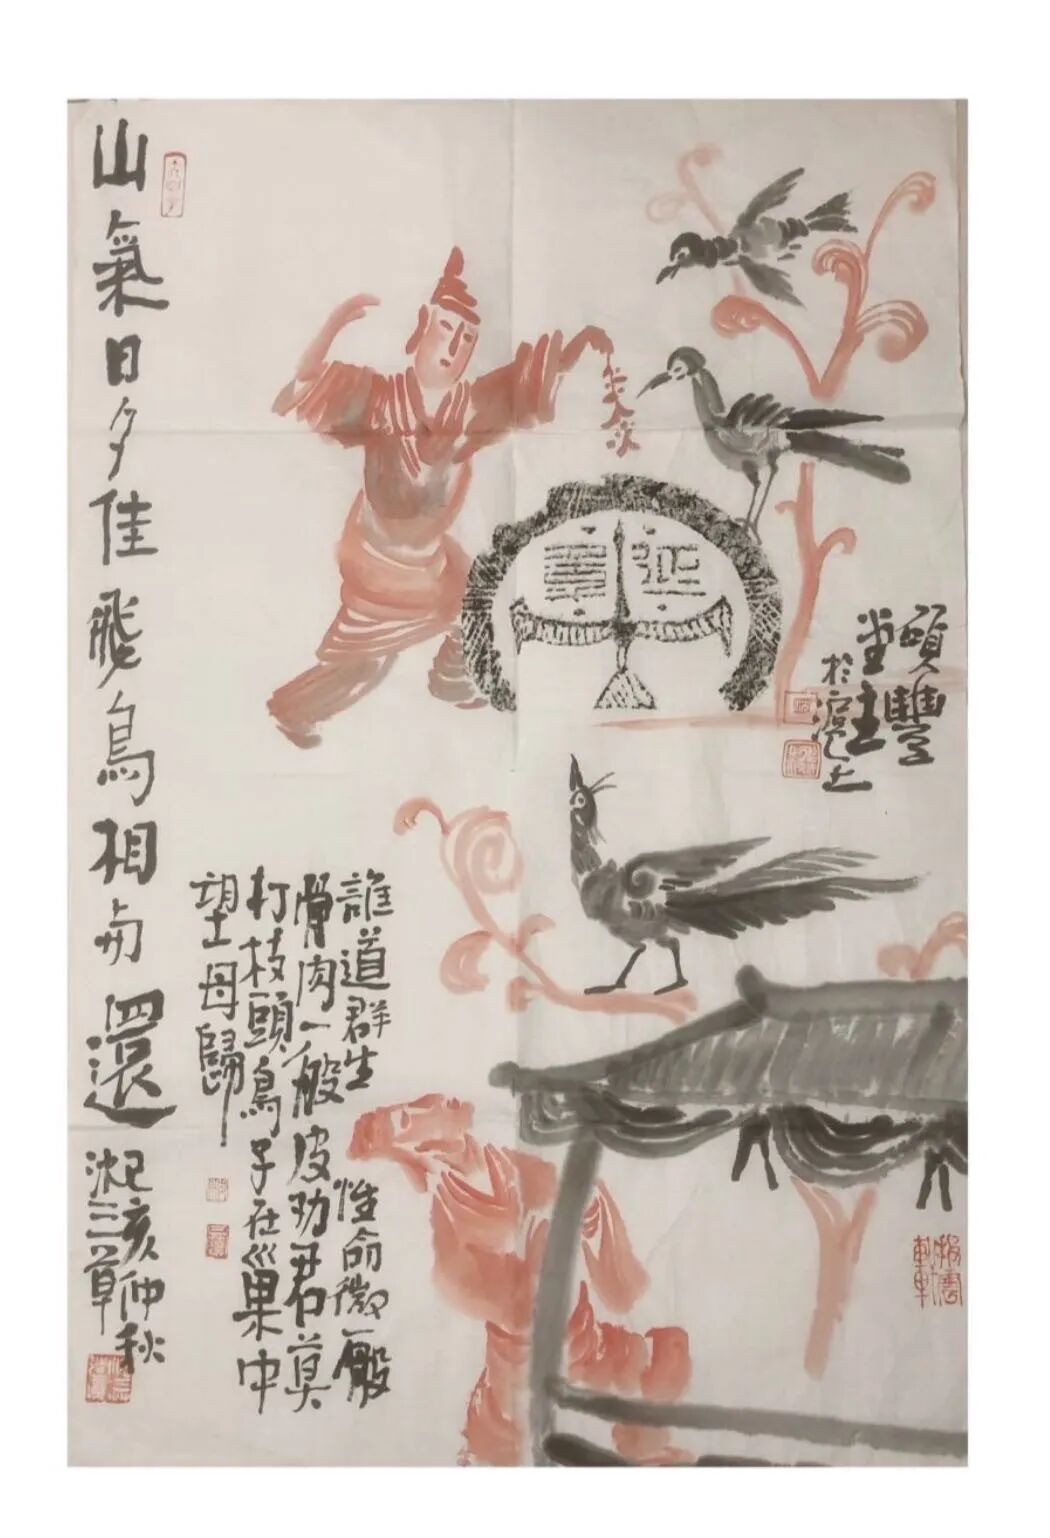 頤豐
堂主
於滬上
延年
誰道群生性命微一般
骨肉一般皮劝君莫
打枝頭鳥子在巢中
望母歸
山氣日夕佳飛鳥相与還
己亥仲秋
三草